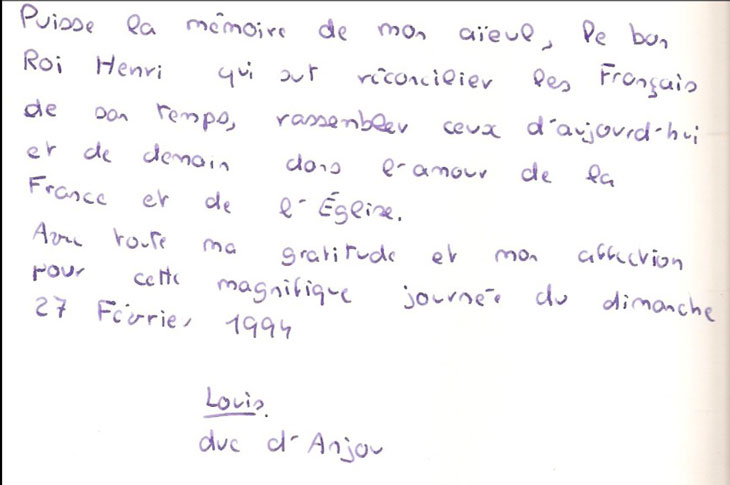 Puisse la mémoire de mon aïeul, le bon
Roi Henri qui sut réconcilier les Français
de son temps, rassembler ceux d'aujourd'hui
et de demain dans l'amour de la
France et de l'Église.
Avec toute ma gratitude et mon affection
pour cette magnifique journée du dimanche
27 Février 1994
Louis.
duc d'Anjou